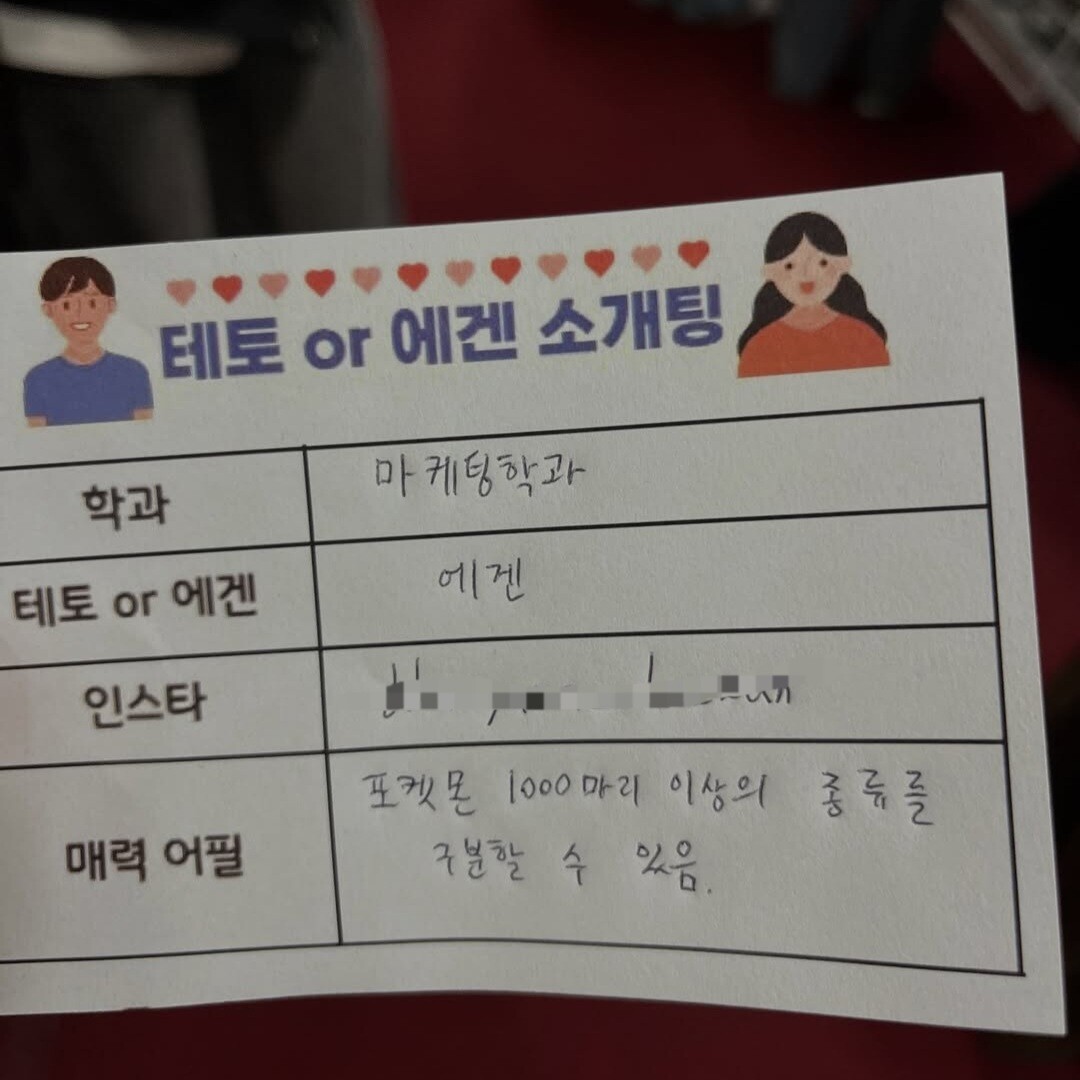 테토 or 에겐 소개팅
학과
마케팅학과
테토 or 에겐
에겐
인스타
매력 어필
포켓몬 1000마리 이상의 종류를
구분할 수 있음.